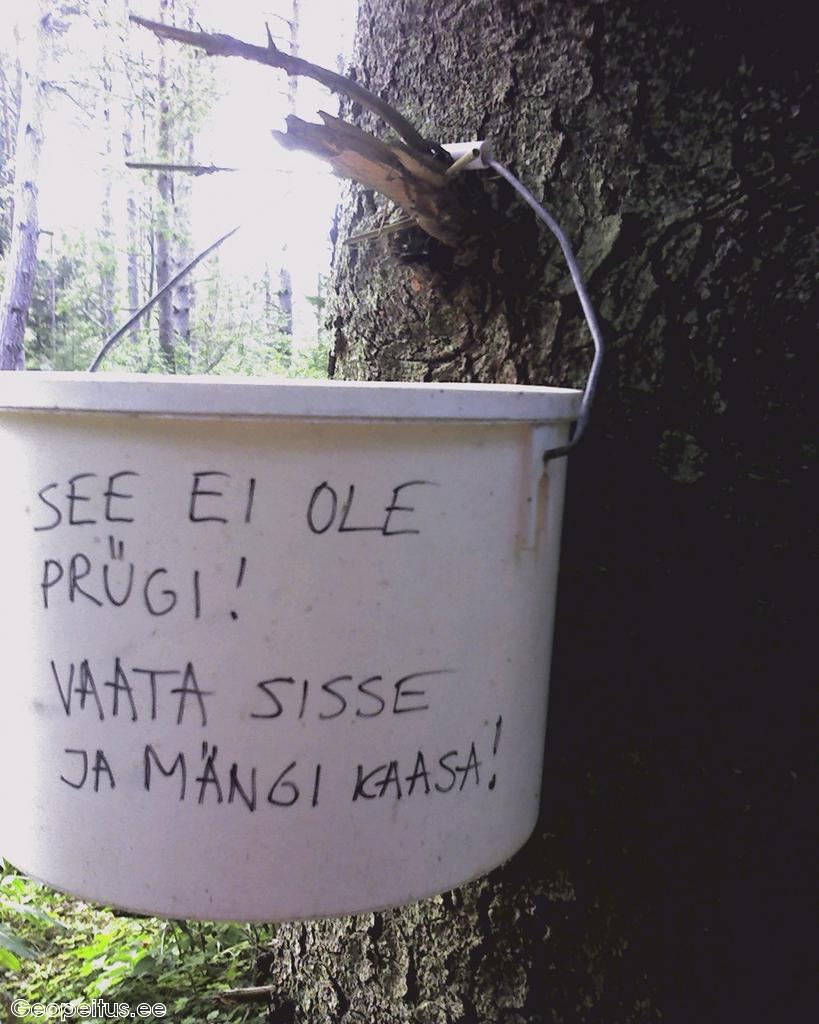 SEE EI OLE
PRÜGI!
VAATA SISSE
JA MÄNGI KAASA!
Geopeitus.ee